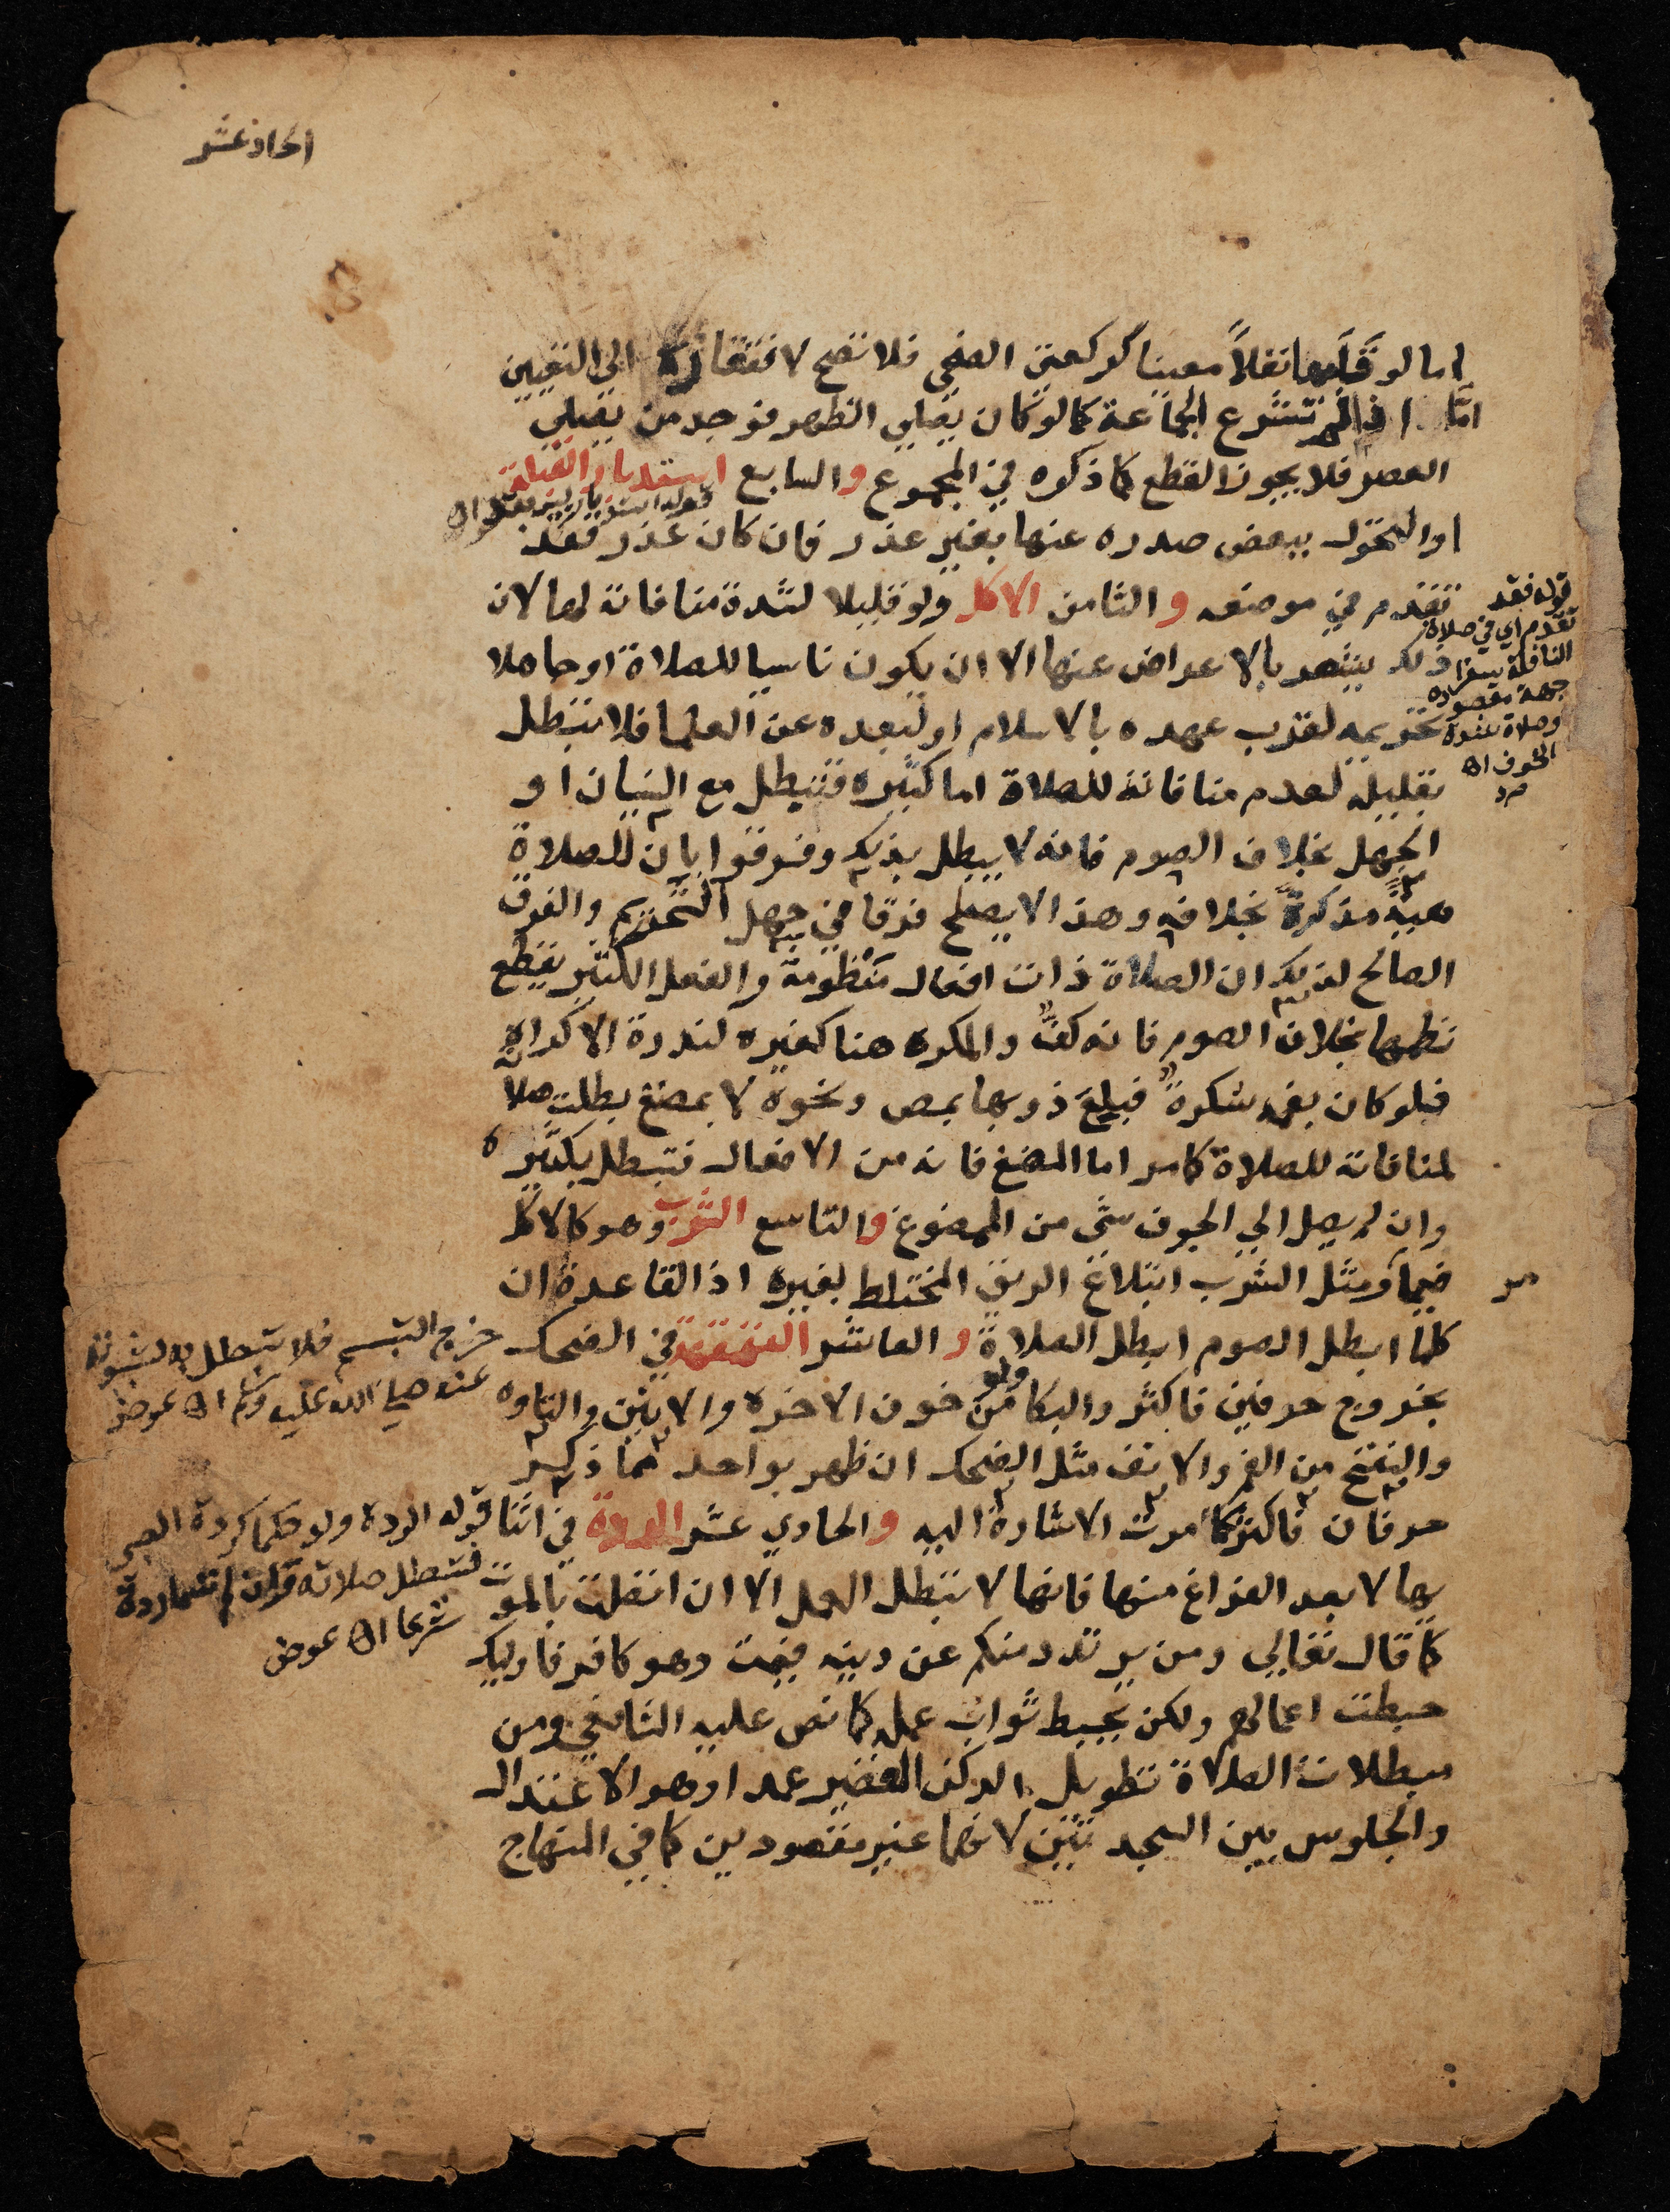 الحاد عشر
اما لو قلبها نفلاً معينا كركعتي الضحى فلا تصح لافتقاره الى التعيين
امّا اذا لم تشرع الجماعة كما لو كان يصلي الظهر فوجد من يصلي
العصر فلا يجوز القطع كما ذكره في المجموع والسابع استدبار القبلة
او التحول ببعض صدره عنها بغير عذر فان كان عذر فقد
تقدم في موضعه والثامن الاكل ولو قليلا لشدة منافاته لها لان
ذلك يشعر بالاعراض عنها الا ان يكون ناسيا للصلاة او جاهلا
تحريمه لقرب عهده بالاسلام او لبعده عن العلما فلا تبطل
بقليله لعدم منافاته للصلاة اما كثيره فتبطل مع النسيان او
الجهل بخلاف الصوم فانه لا يبطل بذلك وفرقوا بان للصلاة
هيئةً مذكرةً بخلافه وهذا لا يصلح فرقا في جهل التحريم والفرق
الصالح لذلك ان الصلاة ذات افعال منظومة والفعل الكثير يقطع
نظمها بخلاف الصوم فانه كفٌّ والمكره هنا كغيره لندرة الاكراه
فلو كان بفمه سكرةٌ فبلع ذوبها بمص ونحوه لا بمضغ بطلت صلاته
لمنافاته للصلاة كما مر اما المضغ فانه من الافعال فتبطل بكثيره
وان لم يصل الى الجوف شئ من الممضوغ والتاسع الشرب وهو كالاكل
فيما مر ومثل الشرب ابتلاع الريق المختلط بغيره اذ القاعدة ان
كلما ابطل الصوم ابطل الصلاة والعاشر القهقهة في الضحك
بخروج حرفين فاكثر والبكا ولو من خوف الاخرة والانين والتاوه
والنفخ من الفم والانف مثل الضحك ان ظهر بواحد مما ذكر
حرفان فاكثر كما مرت الاشارة اليه والحادي عشر الردة في اثنا
يها لا بعد الفراغ منها فانها لا تبطل العمل الا ان اتصلت بالموت
كما قال تعالى ومن يرتدد منكم عن دينه فيمت وهو كافر فاوليك
حبطت اعمالهم ولكن تحبط ثواب عمله كما نص عليه الشافعي ومن
مبطلات الصلاة تطويل الركن القصير عمدا وهو الاعتدال
والجلوس بين السجدتين لانهما غير مقصودين كما في المنهاج
قوله فقد
تقدم اي في صلاة
النافلة سفرا
جهة مقصوده
وصلاة شدة
الخوف اه
خرج التبسم فلا تبطل به لثبوته
عنه صلى الله عليه وسلم اه عوض
قوله الردة ولو حكما كردة الصبي
فتبطل صلاته وان لم تسما ردة
شرعا اه عوض